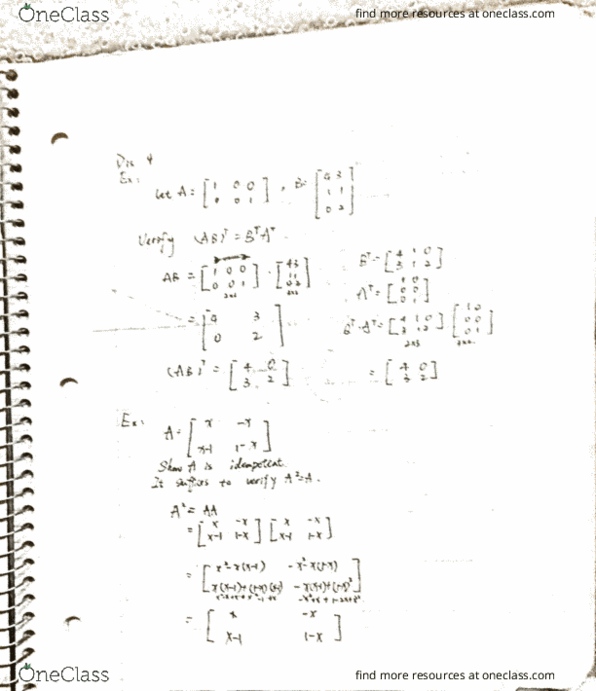 OneClass
find more resources at oneclass.com
Dec 4
Ex:
Let A = [1 0 0; 0 0 1], B = [4 3; 1 1; 0 2]
Verify (AB)ᵀ = BᵀAᵀ.
AB = [1 0 0; 0 0 1] · [4 3; 1 1; 0 2]
2x3
= [4 3; 0 2]
(AB)ᵀ = [4 0; 3 2]
Bᵀ = [4 1 0; 3 1 2]
Aᵀ = [1 0; 0 0; 0 1]
Bᵀ·Aᵀ = [4 1 0; 3 1 2] [1 0; 0 0; 0 1]
2x3
= [4 0; 3 2]
Ex:
A = [x -x; x-1 1-x]
Show A is idempotent.
It suffices to verify A²=A.
A² = AA
= [x -x; x-1 1-x] [x -x; x-1 1-x]
= [x²-x(x-1) -x²-x(1-x); x(x-1)+(1-x)(x-1) -x(x-1)+(1-x)²]
= [x -x; x-1 1-x]
OneClass
find more resources at oneclass.com